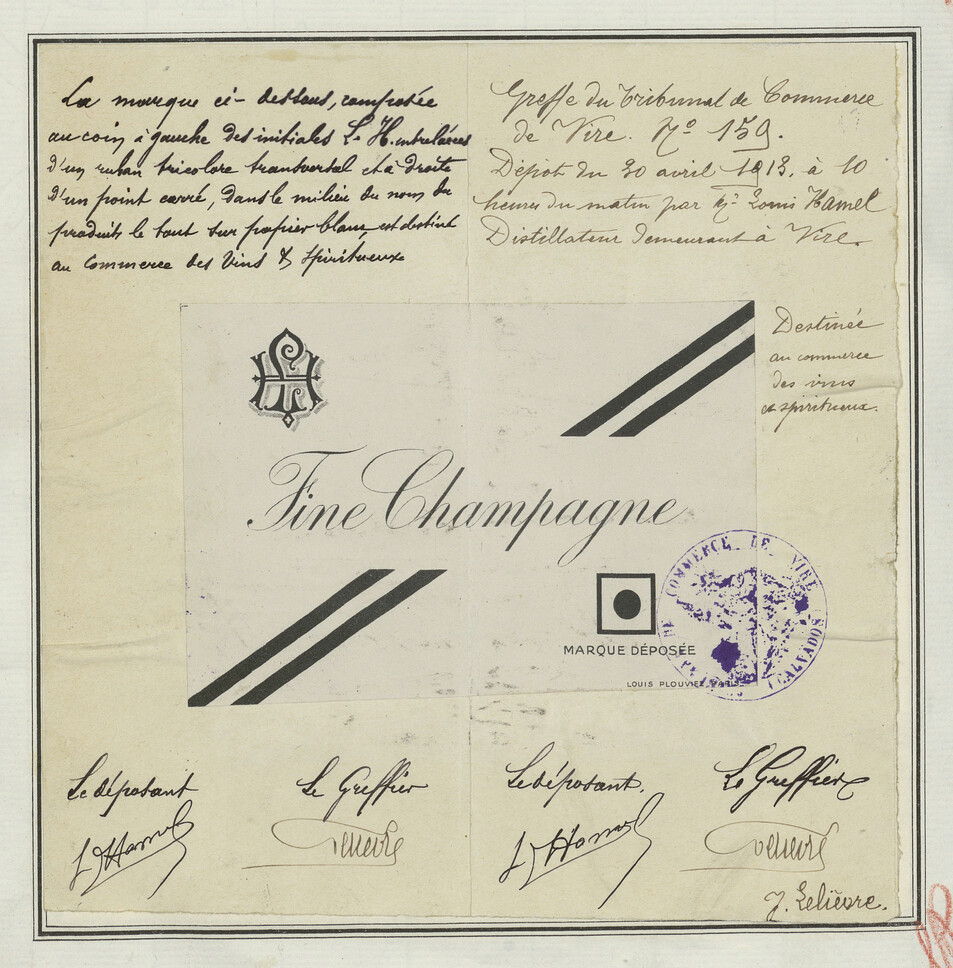 La marque ci-dessous, composée
au coin à gauche des initiales L. H. entrelacées
d'un ruban tricolore transversal et à droite
d'un point carré, dans le milieu du nom du
produit le tout sur papier blanc, est destiné
au Commerce des Vins & Spiritueux
Greffe du Tribunal de Commerce
de Vire. No 159.
Dépôt du 30 avril 1913. à 10
heures du matin par Mr Louis Hamel
Distillateur demeurant à Vire.
Destinée
au commerce
des vins
et spiritueux.
LH
Fine Champagne
MARQUE DÉPOSÉE
LOUIS PLOUVIEZ, PARIS
DE COMMERCE DE VIRE
(CALVADOS
Le déposant
Le Greffier
Le déposant.
Le Greffier
L Hamel
L Hamel
J. Lelièvre.